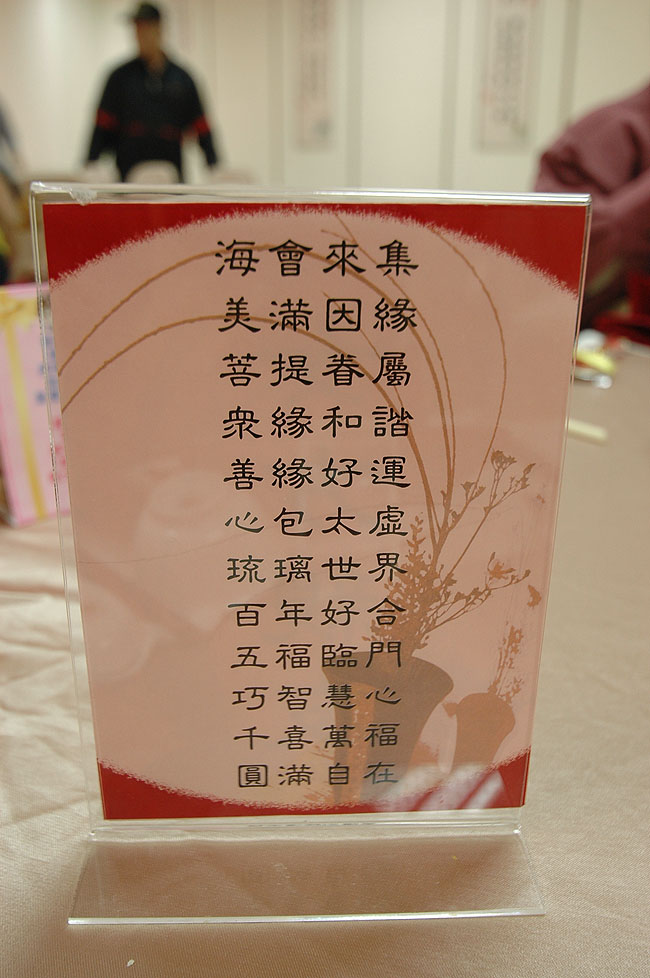 海會來集
美滿因緣
菩提眷屬
衆緣和諧
善緣好運
心包太虛
琉璃世界
百年好合
五福臨門
巧智慧心
千喜萬福
圓滿自在